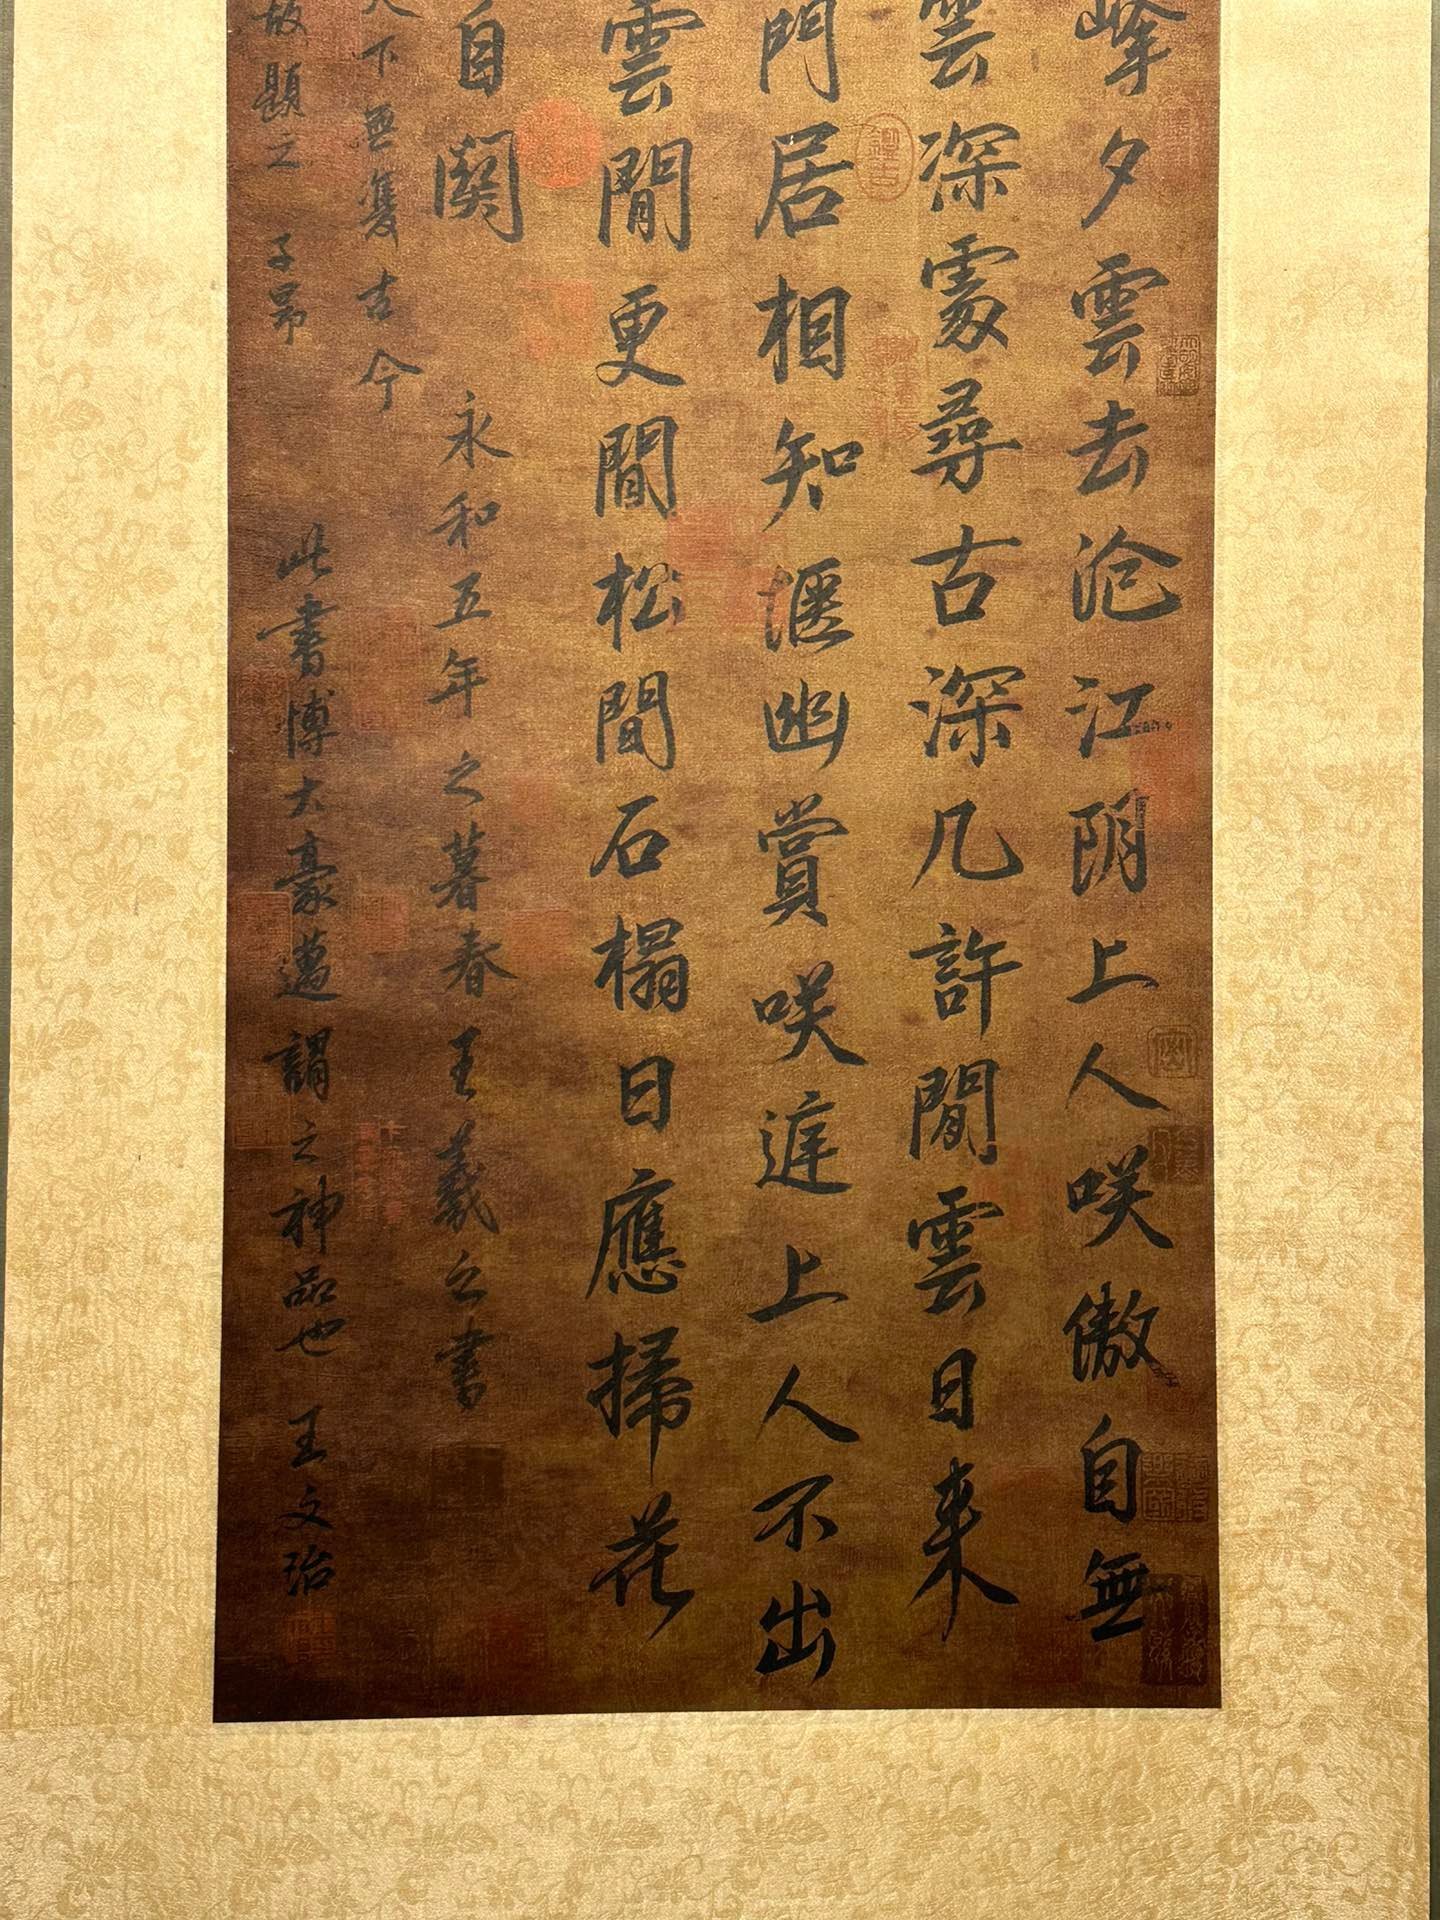 峰夕雲去沧江阴上人咲傲自無
雲深處尋古深几許閒雲日来
門居相知偃幽賞咲遅上人不出
雲閒更閒松間石榻日應掃花
自関
永和五年之暮春王羲之書
天下無雙古今
故題之 子昂
此書博大豪邁謂之神品也 王文治